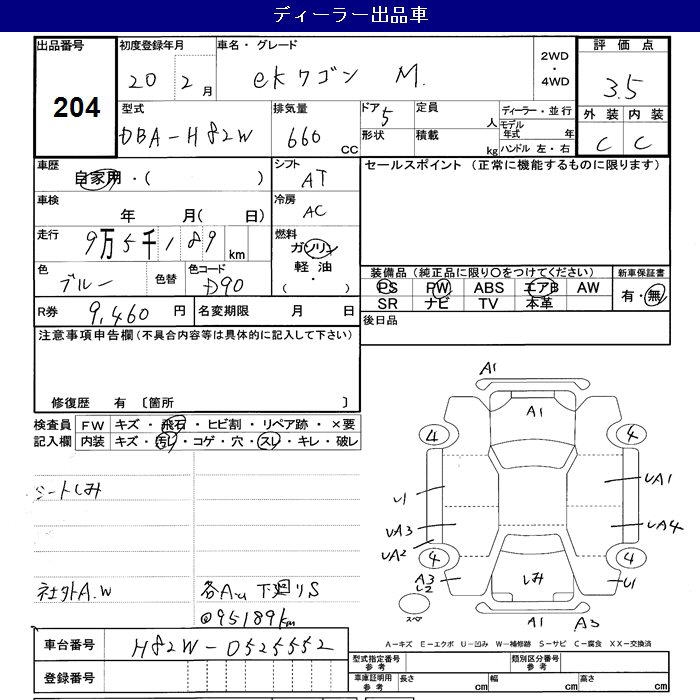 ディーラー出品車
出品番号 204
初度登録年月 20 2 月
車名・グレード ekワゴン M.
2WD・4WD
評価点 3.5
外装 内装
C C
型式 DBA-H82W
排気量 660 CC
ドア 5
形状
定員 人
積載 kg
ディーラー・並行
モデル年式 年
ハンドル 左・右
車歴 自家用・( )
シフト AT
セールスポイント (正常に機能するものに限ります)
車検 年 月( 日)
冷房 AC
走行 9万5千189 km
燃料 ガソリン
軽油
( ・ )
色 ブルー 色替 色コード D90
装備品 (純正品に限り○をつけてください) 新車保証書
PS PW ABS エアB AW 有・無
SR ナビ TV 本革
R券 9,460 円 名変期限 月 日
後日品
注意事項申告欄 (不具合内容等は具体的に記入して下さい)
修復歴 有 〔箇所 〕
検査員記入欄
FW キズ・飛石・ヒビ割・リペア跡・×要
内装 キズ・汚レ・コゲ・穴・スレ・キレ・破レ
シートしみ
社外A.W
各A.u 下廻りS
@95189km
A1
A1
4 4
U1 UA1
UA3 UA4
UA2
4 4
A3 しみ U1
U2
スペア
A1 A3
A-キズ E-エクボ U-凹み W-補修跡 S-サビ C-腐食 XX-交換済
車台番号 H82W-0525552
型式指定番号 参考 類別区分番号 参考
登録番号
車庫証明用 参考 長さ cm 幅 cm 高さ cm